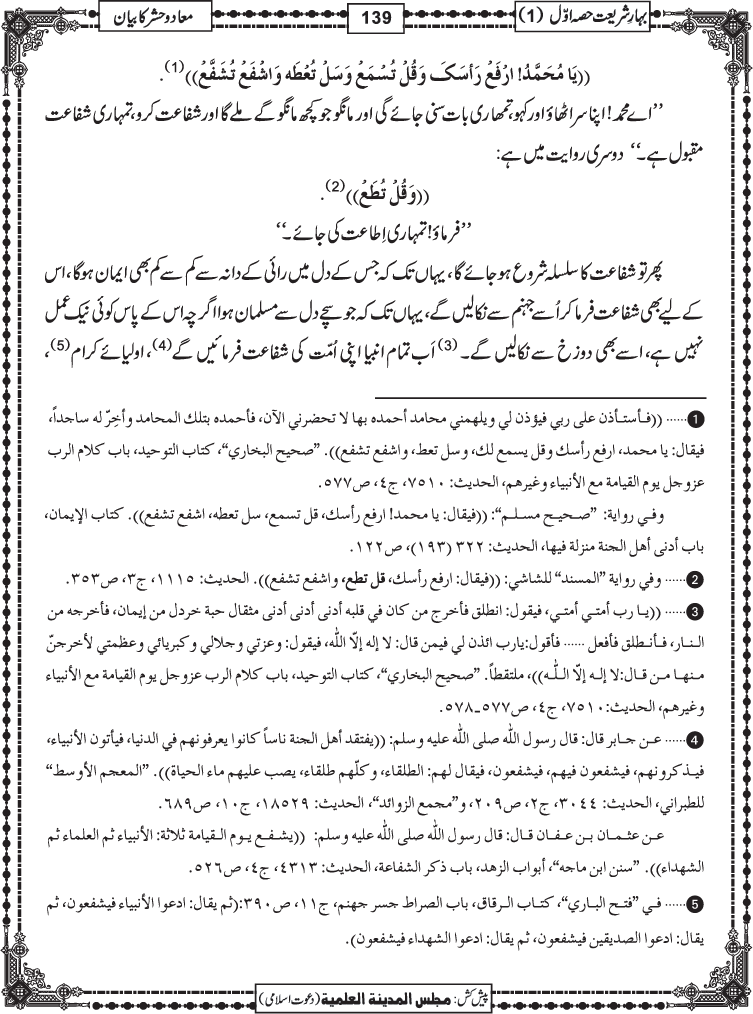 بہارِ شریعت حصہ اوّل (1)
139
معاد و حشر کا بیان
((یَا مُحَمَّدُ! ارْفَعْ رَأسَکَ وَقُلْ تُسْمَعْ وَسَلْ تُعْطَہ وَاشْفَعْ تُشَفَّعْ))(1).
’’اے محمد! اپنا سر اٹھاؤ اور کہو، تمھاری بات سنی جائے گی اور مانگو جو کچھ مانگو گے ملے گا اور شفاعت کرو، تمہاری شفاعت
مقبول ہے۔‘‘ دوسری روایت میں ہے:
((وَقُلْ تُطَعْ))(2).
’’فرماؤ! تمہاری اِطاعت کی جائے۔‘‘
پھر تو شفاعت کا سلسلہ شروع ہو جائے گا، یہاں تک کہ جس کے دل میں رائی کے دانہ سے کم سے کم بھی ایمان ہوگا، اس
کے لیے بھی شفاعت فرما کر اُسے جہنم سے نکالیں گے، یہاں تک کہ جو سچے دل سے مسلمان ہوا اگرچہ اس کے پاس کوئی نیک عمل
نہیں ہے، اسے بھی دوزخ سے نکالیں گے۔ (3) اَب تمام انبیا اپنی اُمّت کی شفاعت فرمائیں گے(4)، اولیائے کرام (5)،
1...... ((فأستأذن على ربي فيؤذن لي ويلهمني محامد أحمده بها لا تحضرني الآن، فأحمده بتلك المحامد وأخِرّ له ساجداً،
فيقال: يا محمد، ارفع رأسك وقل يسمع لك، وسل تعط، واشفع تشفع)). ”صحيح البخاري“، كتاب التوحيد، باب كلام الرب
عزوجل يوم القيامة مع الأنبياء وغيرهم، الحديث: ٧٥١٠، ج٤، ص٥٧٧.
وفي رواية: ”صحيح مسلم“: ((فيقال: يا محمد! ارفع رأسك، قل تسمع، سل تعطه، اشفع تشفع)). كتاب الإيمان،
باب أدنى أهل الجنة منزلة فيها، الحديث: ٣٢٢ (١٩٣)، ص١٢٢.
2...... وفي رواية ”المسند“ للشاشي: ((فيقال: ارفع رأسك، قل تطع، واشفع تشفع)). الحديث: ١١١٥، ج٣، ص٣٥٣.
3...... ((يا رب أمتي أمتي، فيقول: انطلق فأخرج من كان في قلبه أدنى أدنى أدنى مثقال حبة خردل من إيمان، فأخرجه من
النار، فأنطلق فأفعل ...... فأقول: يارب ائذن لي فيمن قال: لا إله إلّا اللّٰه، فيقول: وعزتي وجلالي وكبريائي وعظمتي لأخرجنّ
منها من قال: لا إله إلّا اللّٰه))، ملتقطاً. ”صحيح البخاري“، كتاب التوحيد، باب كلام الرب عزوجل يوم القيامة مع الأنبياء
وغيرهم، الحديث: ٧٥١٠، ج٤، ص٥٧٧ـ٥٧٨.
4...... عن جابر قال: قال رسول اللّٰه صلى اللّٰه عليه وسلم: ((يفتقد أهل الجنة ناساً كانوا يعرفونهم في الدنيا، فيأتون الأنبياء،
فيذكرونهم، فيشفعون فيهم، فيشفعون، فيقال لهم: الطلقاء، وكلّهم طلقاء، يصب عليهم ماء الحياة)). ”المعجم الأوسط“
للطبراني، الحديث: ٣٠٤٤، ج٢، ص٢٠٩، و”مجمع الزوائد“، الحديث: ١٨٥٢٩، ج١٠، ص٦٨٩.
عن عثمان بن عفان قال: قال رسول اللّٰه صلى اللّٰه عليه وسلم: ((يشفع يوم القيامة ثلاثة: الأنبياء ثم العلماء ثم
الشهداء)). ”سنن ابن ماجه“، أبواب الزهد، باب ذكر الشفاعة، الحديث: ٤٣١٣، ج٤، ص٥٢٦.
5...... في ”فتح الباري“، كتاب الرقاق، باب الصراط جسر جهنم، ج١١، ص٣٩٠: (ثم يقال: ادعوا الأنبياء فيشفعون، ثم
يقال: ادعوا الصديقين فيشفعون، ثم يقال: ادعوا الشهداء فيشفعون).
پیش کش: مجلس المدینۃ العلمیۃ (دعوتِ اسلامی)